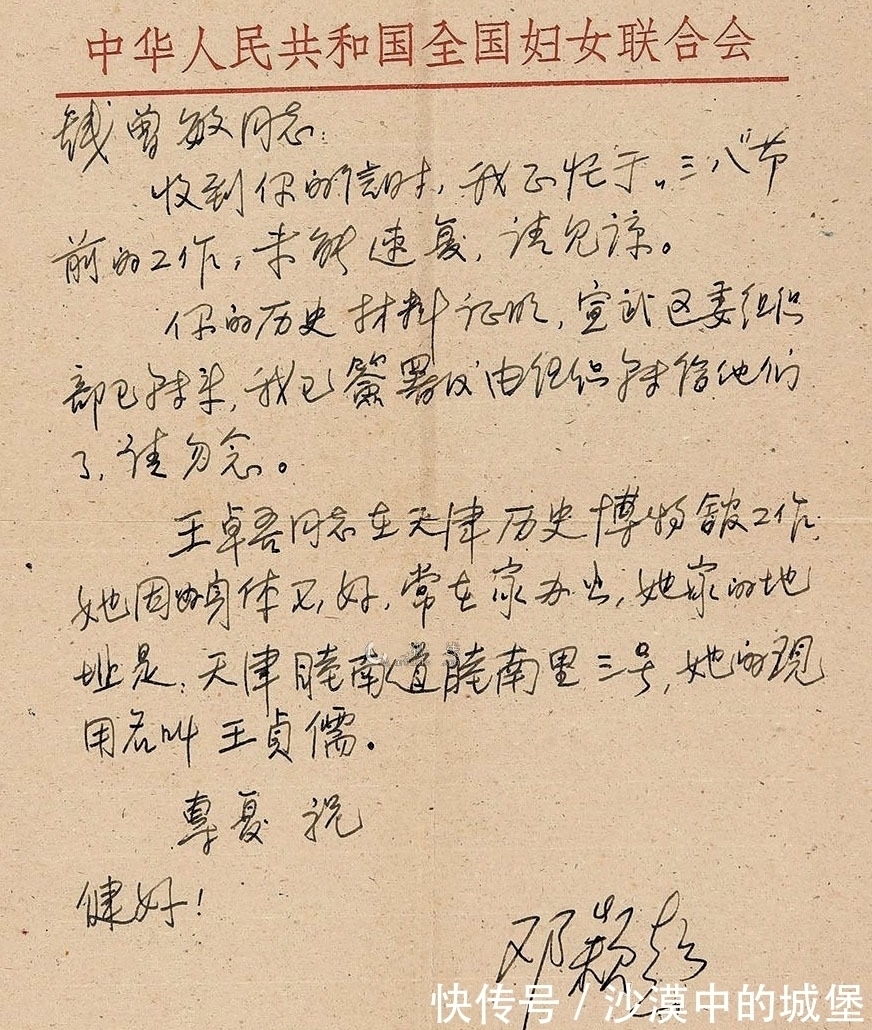 中华人民共和国全国妇女联合会
钱曾敏同志：
收到你的信时，我正忙于"三八"节
前的工作，未能速复，请见谅。
你的历史材料证明，宣武区委组织
部已转来，我已签署仪由组织转给他们
了，请勿念。
王卓吾同志在天津历史博物馆工作
她因为身体不好，常在家办公，她家的地
址是：天津睦南道睦南里三号，她的现
用名叫王贞儒。
专复 祝
健好！
邓颖超
快传号 / 沙漠中的城堡